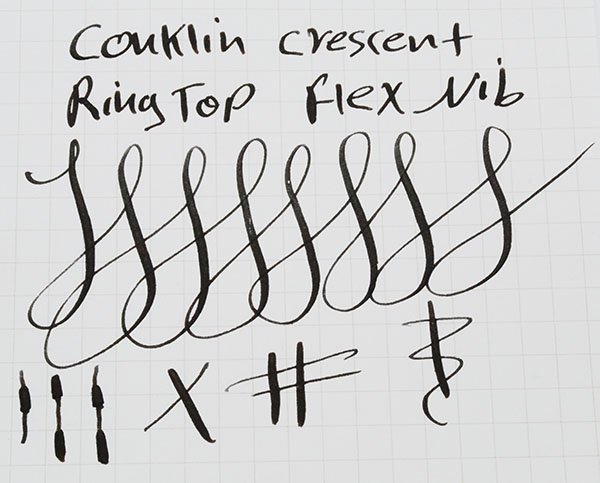 Conklin crescent
Ring Top flex Nib
X #